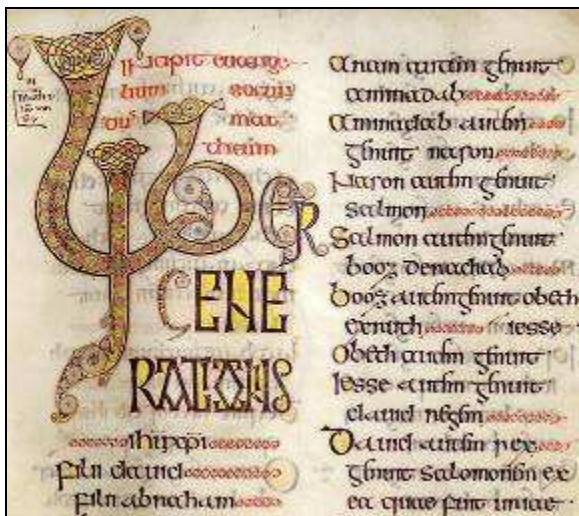 incipit euange
lium secun
mat
theum
Liber
GENE
RATIONIS
ihu xpi
filii dauid
filii abraham
Aram autem genuit
aminadab
Aminadab autem
genuit nason
Nason autem genuit
salmon
Salmon autem genuit
booz de rachab
booz autem genuit obeth
ex ruth iesse
Obeth autem genuit
Iesse autem genuit
dauid regem
Dauid autem rex
genuit salomonem ex
ea quae fuit uriae